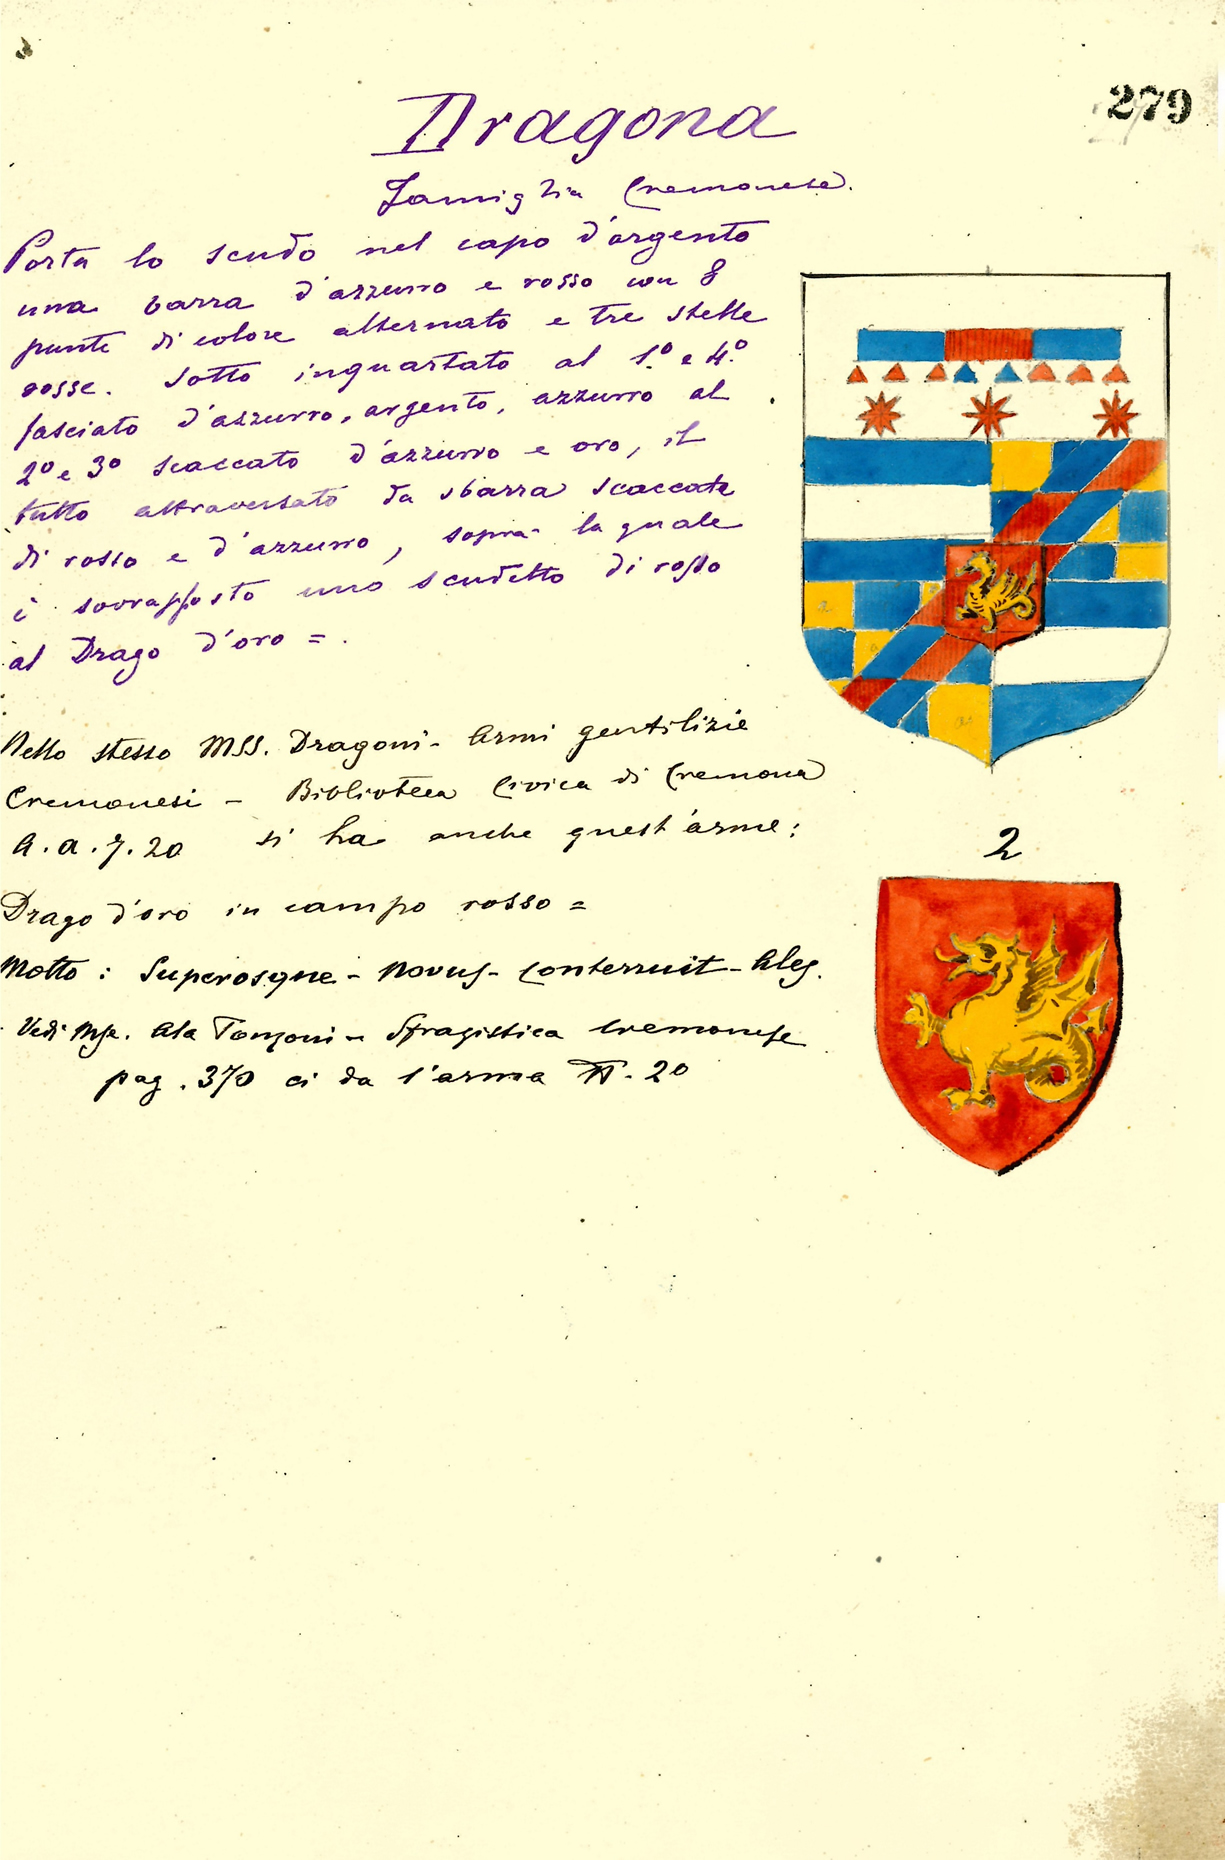 279
Dragona
Famiglia Cremonese.
Porta lo scudo nel capo d'argento
una barra d'azzurro e rosso con 8
punte di colore alternato e tre stelle
rosse. Sotto inquartato al 1.º e 4.º
fasciato d'azzurro, argento, azzurro al
2º e 3º scaccato d'azzurro e oro, il
tutto attraversato da sbarra scaccate
di rosso e d'azzurro, sopra la quale
è sovrapposto uno scudetto di rosso
al Drago d'oro = .
Nello stesso MSS. Dragoni - Armi gentilizie
Cremonesi - Biblioteca Civica di Cremona
A. a. 7. 20 si ha anche quest'arme:
2
Drago d'oro in campo rosso =
Motto: Superosque - Novus - Conterruit - Ales.
Vedi Mse. Ala Ponzoni - Sfragistica Cremonese
pag. 370 ci da l'arma N. 20